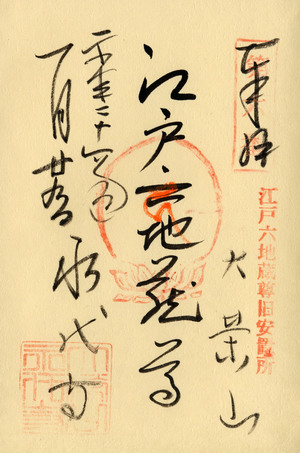 奉拝
江戸六地蔵尊旧安置所
大栄山
江戸六地蔵尊
平成二十六年
一月廿
永代寺